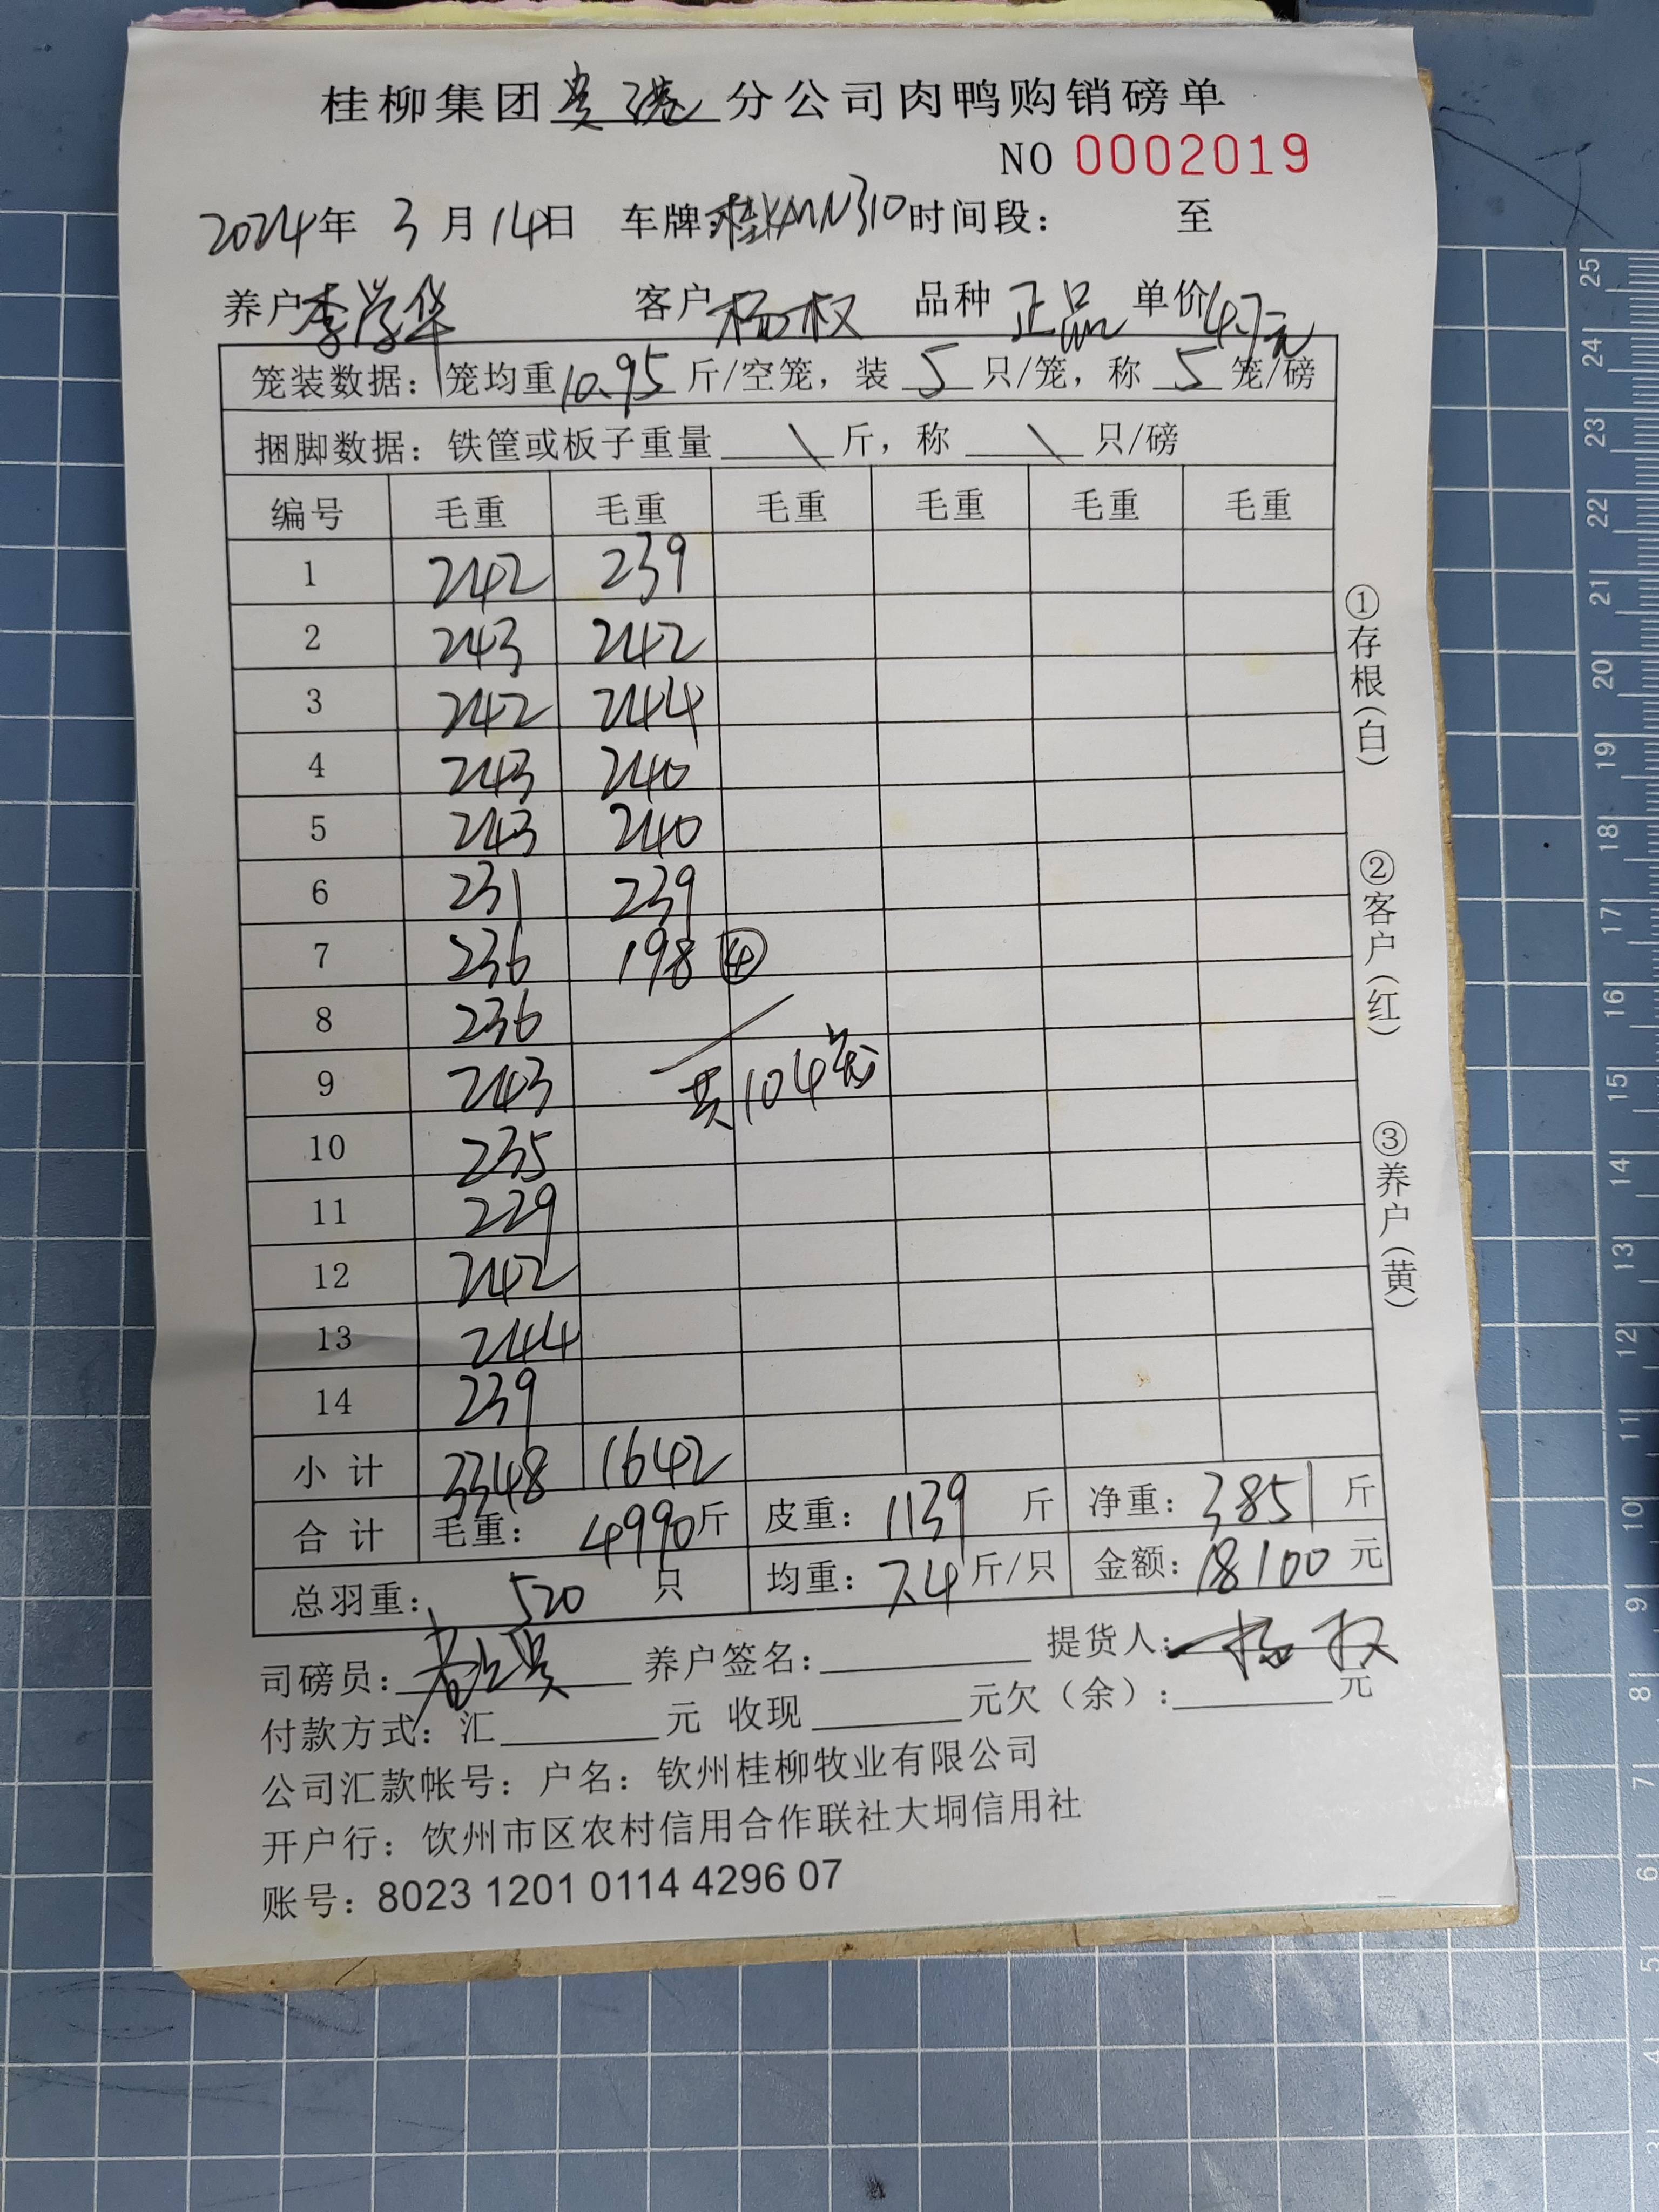 桂柳集团贵港分公司肉鸭购销磅单
NO 0002019
2024年 3月14日 车牌桂KMN310时间段： 至
养户李学华 客户杨权 品种正品 单价4.7元
笼装数据：笼均重10.95斤/空笼，装5只/笼，称5笼/磅
捆脚数据：铁筐或板子重量\斤，称\只/磅
编号 毛重 毛重 毛重 毛重 毛重 毛重
1 242 239
2 243 242
3 242 244
4 243 240
5 243 240
6 231 239
7 236 198 ④
8 236
9 243 共104笼
10 235
11 229
12 242
13 244
14 239
小计 3348 1642
合计 毛重：4990斤 皮重：1139斤 净重：3851斤
总羽重：520只 均重：7.4斤/只 金额：18100元
司磅员： 养户签名： 提货人：杨权
付款方式：汇 元 收现 元欠（余）： 元
公司汇款帐号：户名：钦州桂柳牧业有限公司
开户行：钦州市区农村信用合作联社大垌信用社
账号：8023 1201 0114 4296 07
①存根（白）
②客户（红）
③养户（黄）
25
24
23
22
21
20
19
18
17
16
15
14
13
12
11
10
9
8
7
6
5
4
3